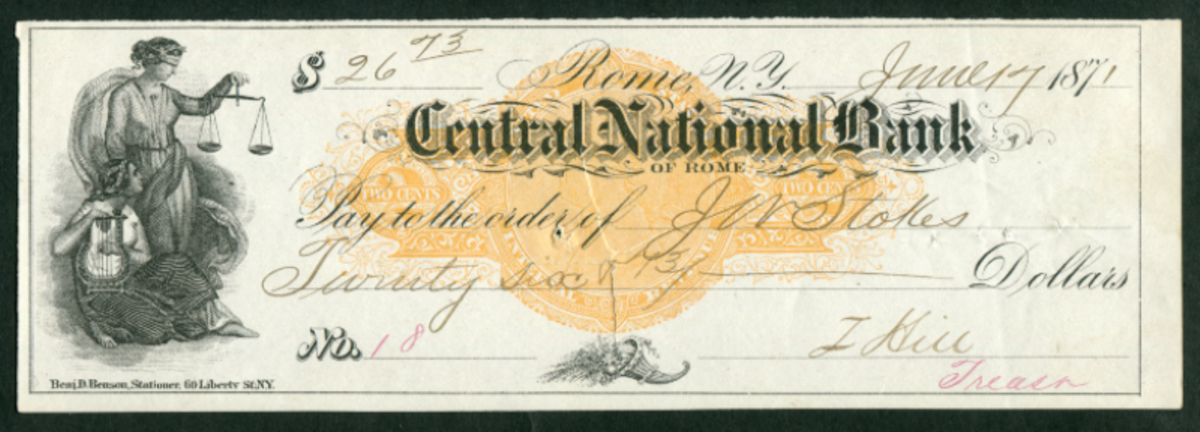 $ 26 73 Rome, N.Y. June 17 1871
Central National Bank
OF ROME
TWO CENTS TWO CENTS
Pay to the order of J W Stokes
Twenty six & 73/ Dollars
No. 18 I Hill
Treasr
Benj. D. Benson, Stationer, 60 Liberty St. N.Y.